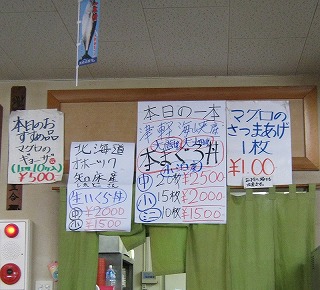 本日のお
すすめ品
マグロの
ギョーザ
(1皿10個入)
¥500
北海道
ホーツク
知床産
(生)いくら丼
中 ¥2000
小 ¥1500
本日の一本
津軽海峡産
本まぐろ丼
中 20枚 ¥2500
小 15枚 ¥2000
ミニ 10枚 ¥1500
マグロの
さつまあげ
1枚
¥100